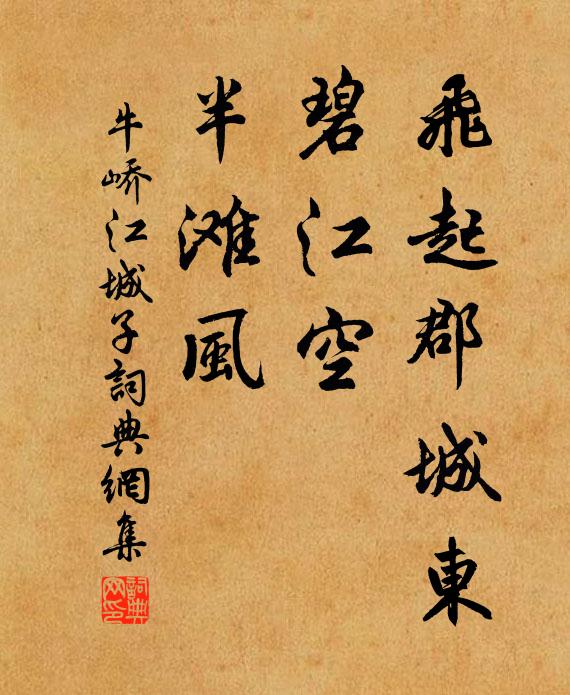 飛起郡城東
碧江空
半滩風
牛峤江城子詞典網集
詞典
网印